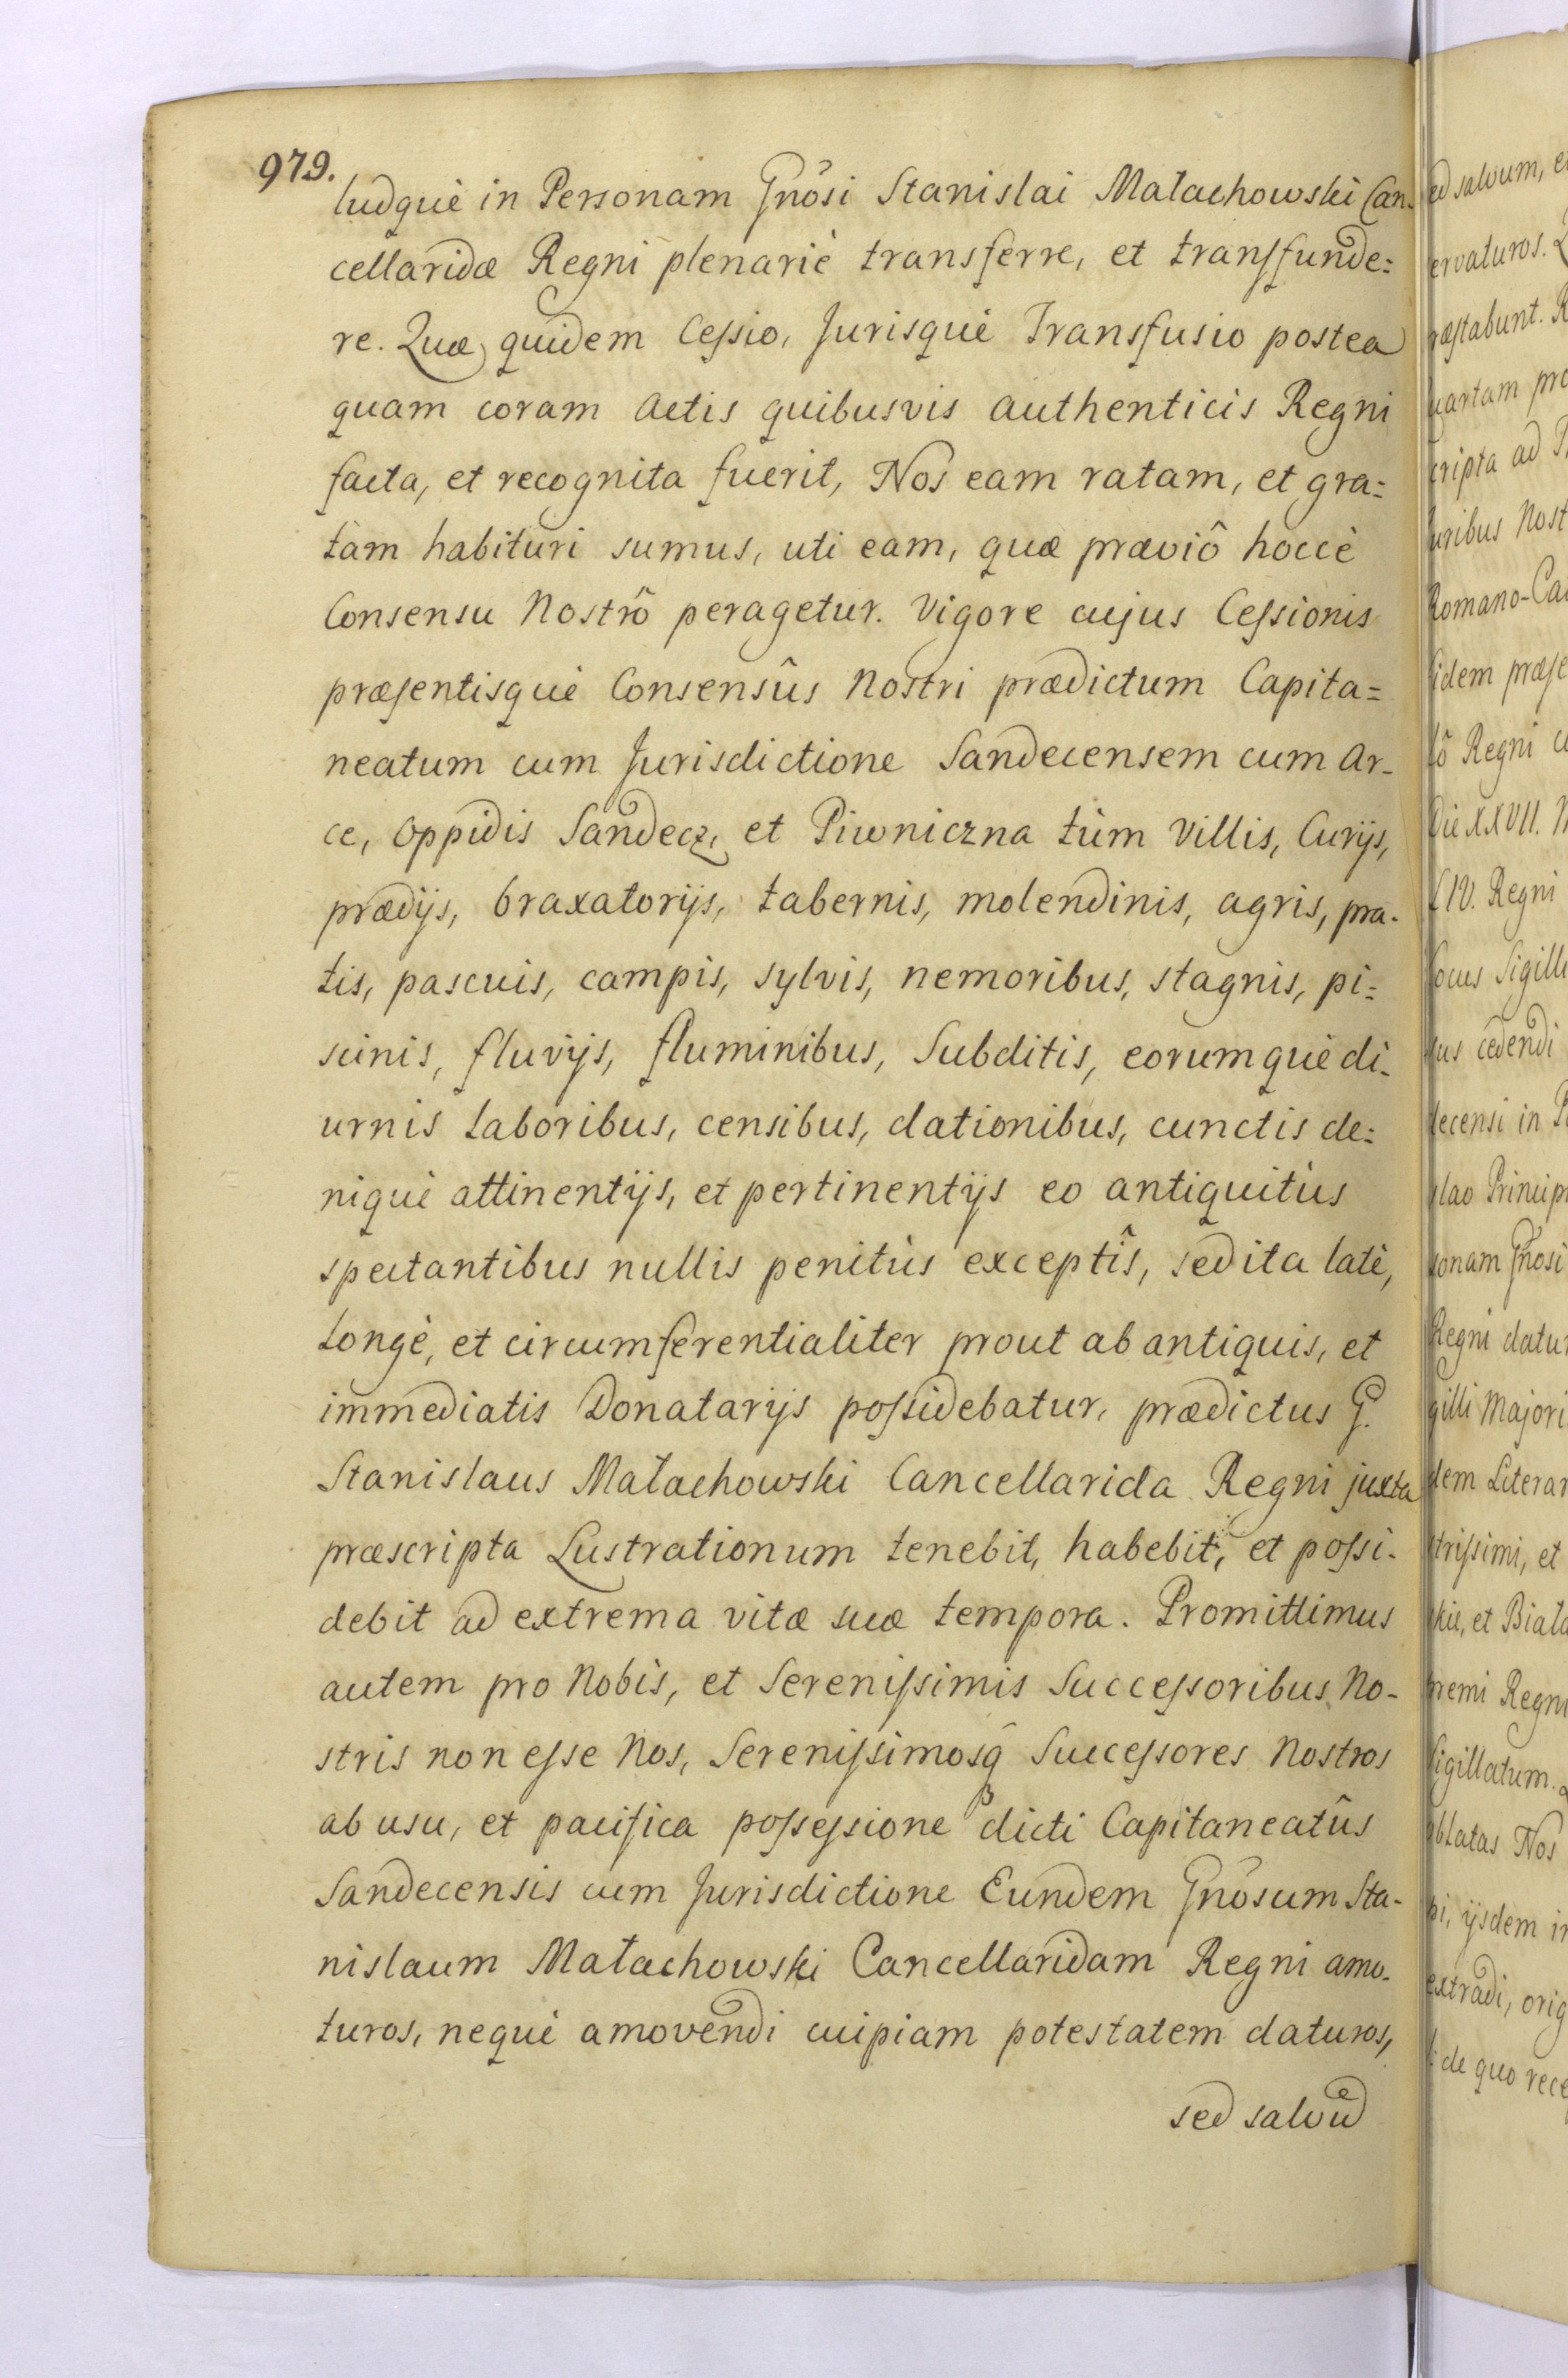 979.
ludquè in Personam Gnôsi Stanislai Małachowski Can-
cellaridæ Regni plenariè transferre, et transfunde=
re. Quæ quidem Cessio, Jurisquè Transfusio postea
quam coram Actis quibusvis authenticis Regni
facta, et recognita fuerit, Nos eam ratam, et gra=
tam habituri sumus, uti eam, quæ præviô hoccè
Consensu Nostrô peragetur. Vigore cujus Cessionis
præsentisquè Consensûs Nostri prædictum Capita=
neatum cum Jurisdictione Sandecensem cum Ar-
ce, Oppidis Sandecz, et Piwniczna tùm Villis, Curijs,
prædijs, braxatorijs, tabernis, molendinis, agris, pra-
tis, pascuis, campis, sylvis, nemoribus, stagnis, pi=
scinis, fluvijs, fluminibus, Subditis, eorumquè di-
urnis laboribus, censibus, dationibus, cunctis de=
niquè attinentijs, et pertinentijs eo antiquitùs
spectantibus nullis penitùs exceptîs, sed ita latè,
longè, et circumferentialiter prout ab antiquis, et
immediatis Donatarijs possidebatur, prædictus G.
Stanislaus Małachowski Cancellarida Regni juxta
præscripta Lustrationum tenebit, habebit, et possi-
debit ad extrema vitæ suæ tempora. Promittimus
autem pro Nobis, et Serenissimis Successoribus No-
stris non esse Nos, Serenissimosq̃ Successores Nostros
ab usu, et pacifica possessione dicti Capitaneatûs
Sandecensis cum Jurisdictione Eundem Gnôsum Sta-
nislaum Małachowski Cancellaridam Regni amo-
turos, nequè amovendi cuipiam potestatem daturos,
sed salvū
ed salvum, e
ervaturos.
ræstabunt. R
uartam pro
cripta ad
uribus Nost
Romano-Ca
fidem præse
lô Regni
Die XXVII.
LIV. Regni
Locus Sigilli
sus cedendi
decensi in
slao Princip
sonam Gnôsi
Regni datur
gilli Majori
dem Literar
strissimi, et
skie, et Biala
premi Regni
Sigillatum.
oblatas Nos
pi, ijsdem in
extradi, orig
de quo rece